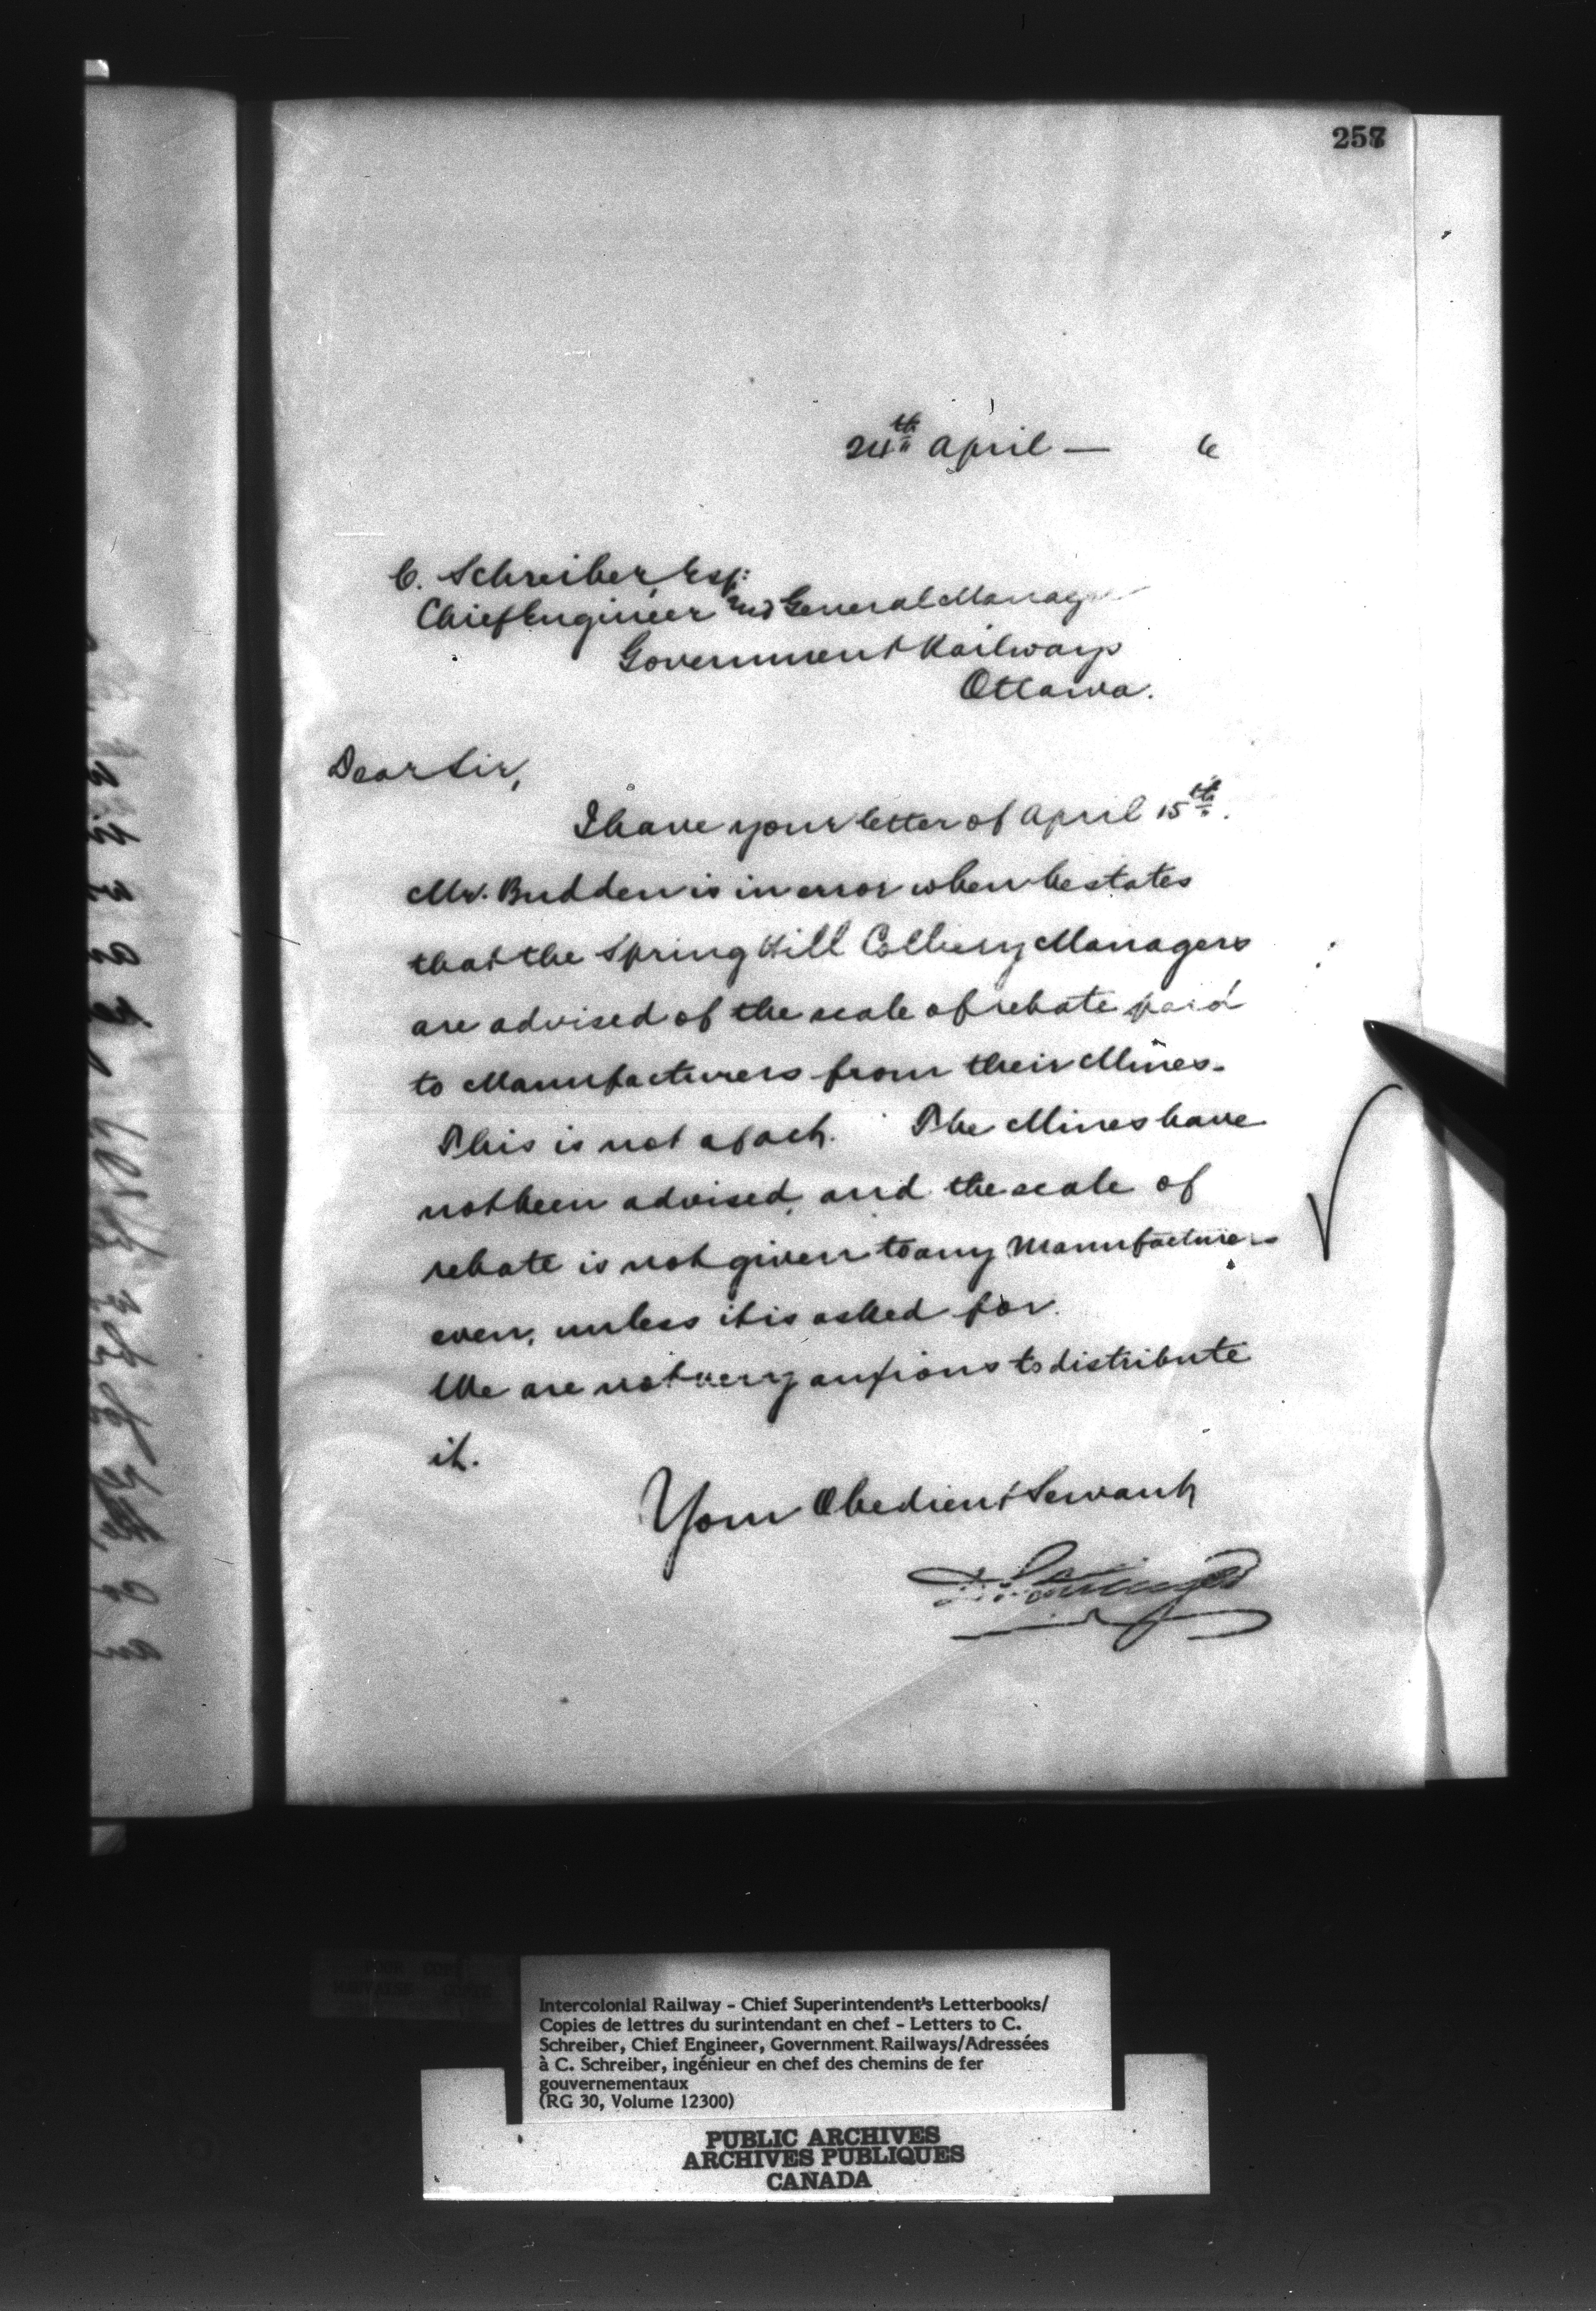 257
24th April — 6
C. Schreiber, Esq:
Chief Engineer and General Manager
Government Railways
Ottawa.
Dear Sir,
I have your letter of April 15th.
Mr. Budden is in error when he states
that the Spring Hill Colliery Managers
are advised of the scale of rebate paid
to Manufacturers from their Mines.
This is not a fact. The Mines have
not been advised, and the scale of
rebate is not given to any Manufacturers
even, unless it is asked for.
We are not very anxious to distribute
it.
Your Obedient Servant
D. Pottinger
Intercolonial Railway - Chief Superintendent's Letterbooks/
Copies de lettres du surintendant en chef - Letters to C.
Schreiber, Chief Engineer, Government Railways/Adressées
à C. Schreiber, ingénieur en chef des chemins de fer
gouvernementaux
(RG 30, Volume 12300)
PUBLIC ARCHIVES
ARCHIVES PUBLIQUES
CANADA